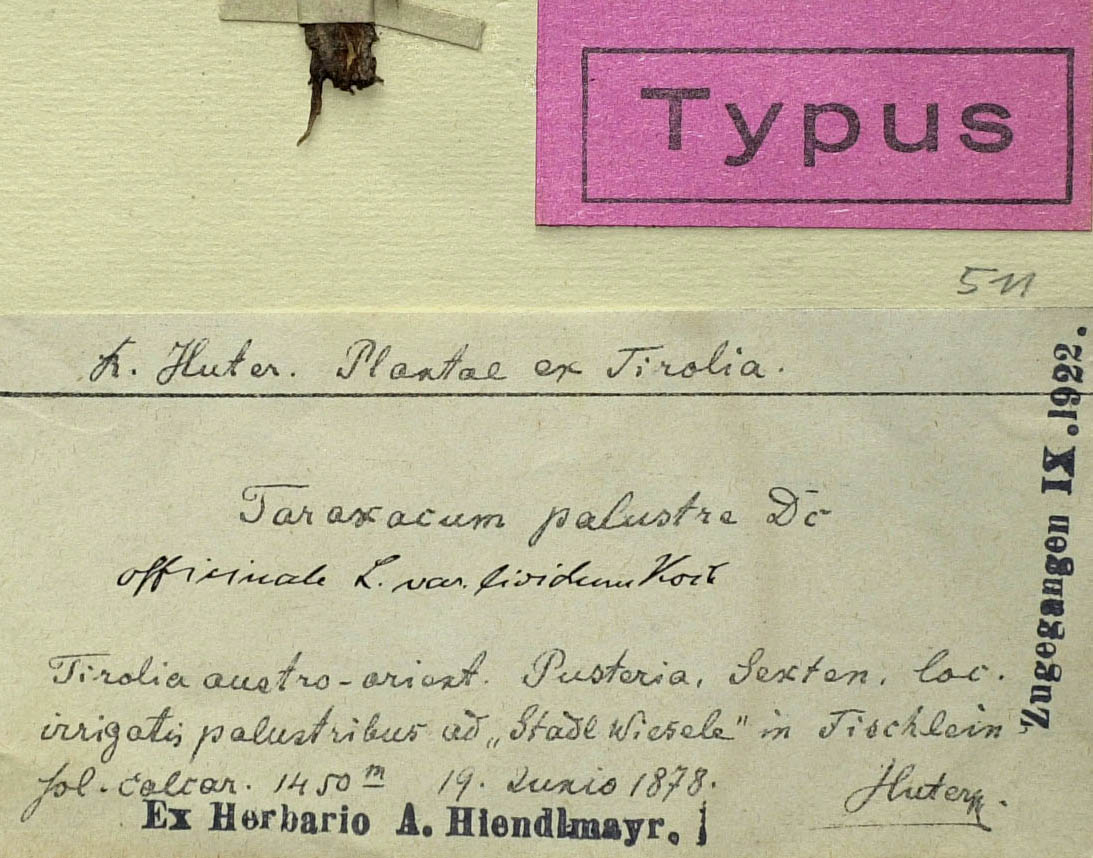 Typus
511
R. Huter. Plantae ex Tirolia.
Taraxacum palustre DC
officinale L. var. lividum Koch
Tirolia austro-orient. Pusteria, Sexten, loc.
irrigatis palustribus ad „Stadl Wiesele" in Fischlein
sol. calcar. 1450 m 19. Junio 1878. Huter.
Ex Herbario A. Hiendlmayr.
Zugegangen IX.1922.